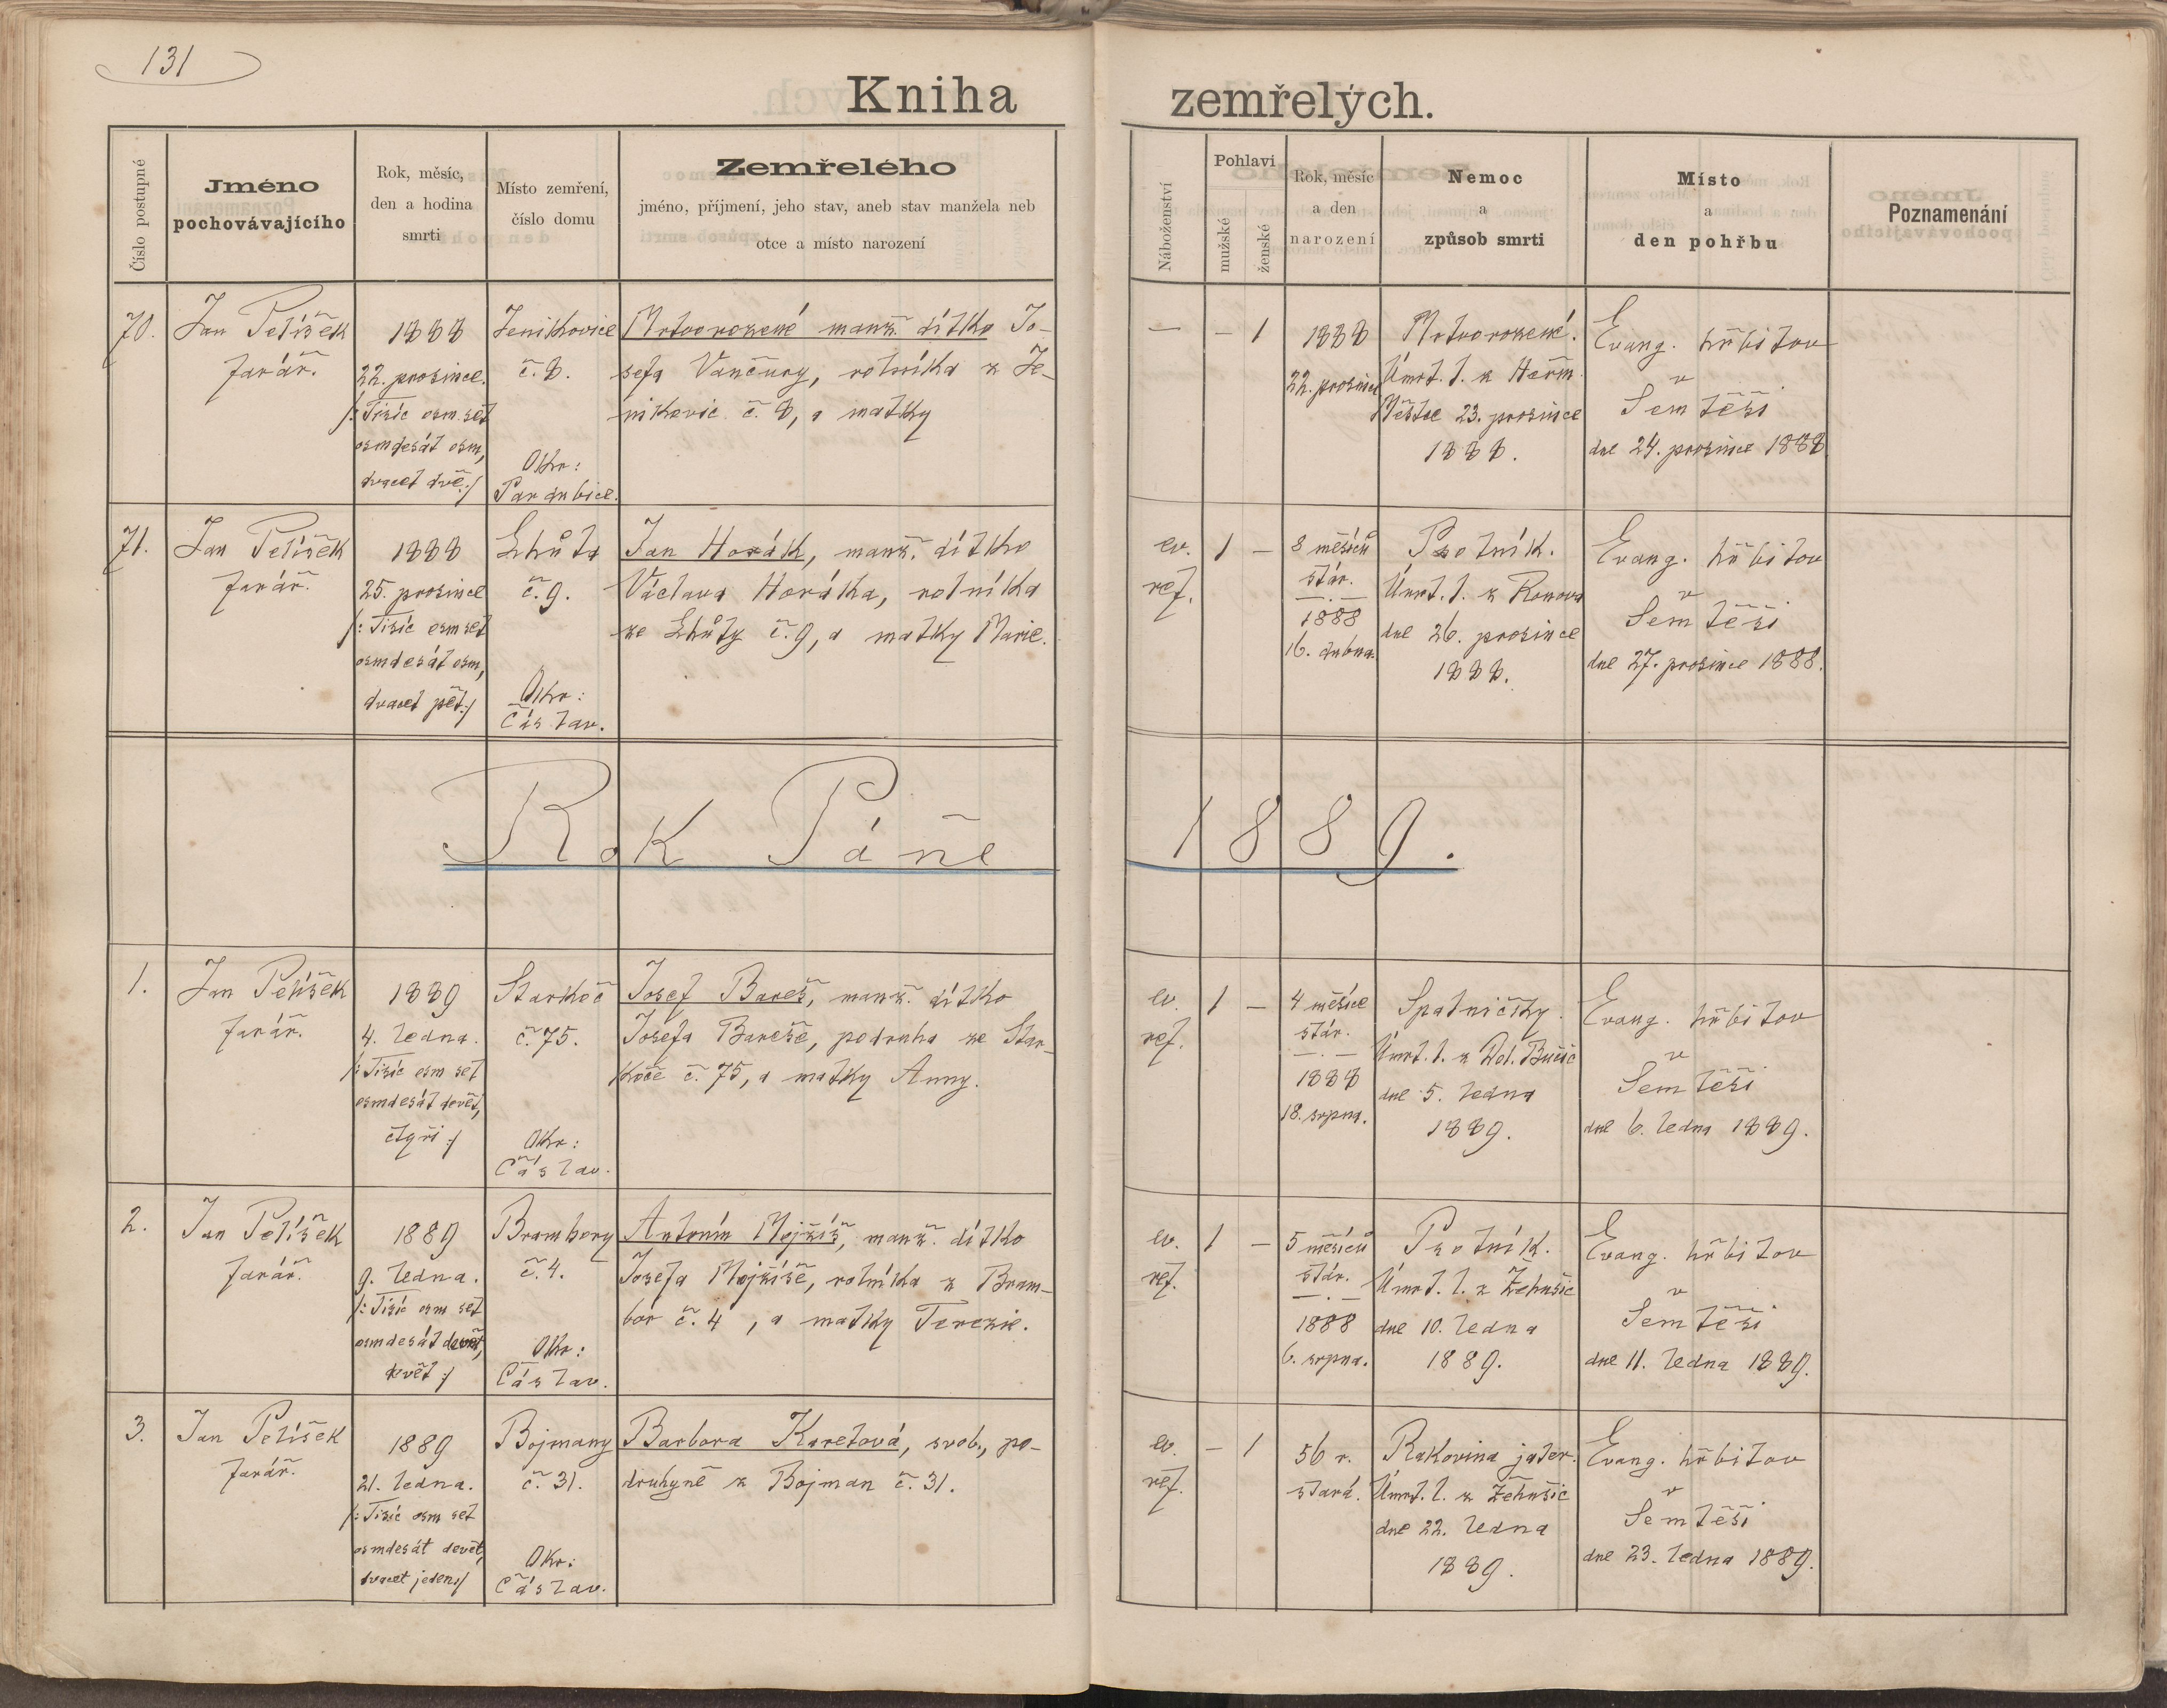 131
Kniha zemřelých.
Číslo postupné
Jméno
pochovávajícího
Rok, měsíc,
den a hodina
smrti
Místo zemření,
číslo domu
Zemřelého
jméno, příjmení, jeho stav, aneb stav manžela neb
otce a místo narození
Náboženství
Pohlavi
mužské
ženské
Rok, měsíc
a den
narození
Nemoc
a
způsob smrti
Místo
a
den pohřbu
Poznamenání
70.
Jan Pelíšek
farář.
1888
22. prosince.
/: Tisíc osm set
osmdesát osm,
dvacet dvě :/
Jenikovice
č. 8.
Okr:
Pardubice.
Mrtvorozené manž. dítko Jo-
sefa Vančury, rolníka z Je-
nikovic č. 8, a matky
—
– 1
1888
22. prosince
Mrtvorozené.
Úmrt. l. z Heřm.
Městce 23. prosince
1888.
Evang. hřbitov
v
Semtěši
dne 24. prosince 1888
71.
Jan Pelíšek
farář.
1888
25. prosince
/: Tisíc osm set
osmdesát osm,
dvacet pět :/
Lhůta
č. 9.
Okr:
Čáslav.
Jan Horák, manž. dítko
Václava Horáka, rolníka
ze Lhůty č. 9, a matky Marie.
ev.
ref.
1 –
8 měsíců
stár.
— . —
1888
16. dubna.
Psotník.
Úmrt. l. z Ronova
dne 26. prosince
1888.
Evang. hřbitov
v
Semtěši
dne 27. prosince 1888.
Rok Páně 1889.
1.
Jan Pelíšek
farář.
1889
4. ledna.
/: Tisíc osm set
osmdesát devět,
čtyři :/
Starkoč
č. 75.
Okr:
Čáslav.
Josef Bareš, manž. dítko
Josefa Bareše, podruha ze Star-
koče č. 75, a matky Anny.
ev.
ref.
1 –
4 měsíce
stár.
— . —
1888
18. srpna.
Spalničky.
Úmrt. l. z Dol. Bučic
dne 5. ledna
1889.
Evang. hřbitov
v
Semtěši
dne 6. ledna 1889.
2.
Jan Pelíšek
farář.
1889
9. ledna.
/: Tisíc osm set
osmdesát devět,
devět :/
Brambory
č. 4.
Okr:
Čáslav.
Antonín Mojžíš, manž. dítko
Josefa Mojžíše, rolníka z Bram-
bor č. 4, a matky Terezie.
ev.
ref.
1 –
5 měsíců
stár.
— . —
1888
6. srpna.
Psotník.
Úmrt. l. z Žehušic
dne 10. ledna
1889.
Evang. hřbitov
v
Semtěši
dne 11. ledna 1889.
3.
Jan Pelíšek
farář.
1889
21. ledna.
/: Tisíc osm set
osmdesát devět,
dvacet jeden :/
Bojmany
č. 31.
Okr:
Čáslav.
Barbora Karelová, svob., po-
druhyně z Bojman č. 31.
ev.
ref.
– 1
56 r.
stará.
Rakovina jater.
Úmrt. l. z Žehušic
dne 22. ledna
1889.
Evang. hřbitov
v
Semtěši
dne 23. ledna 1889.